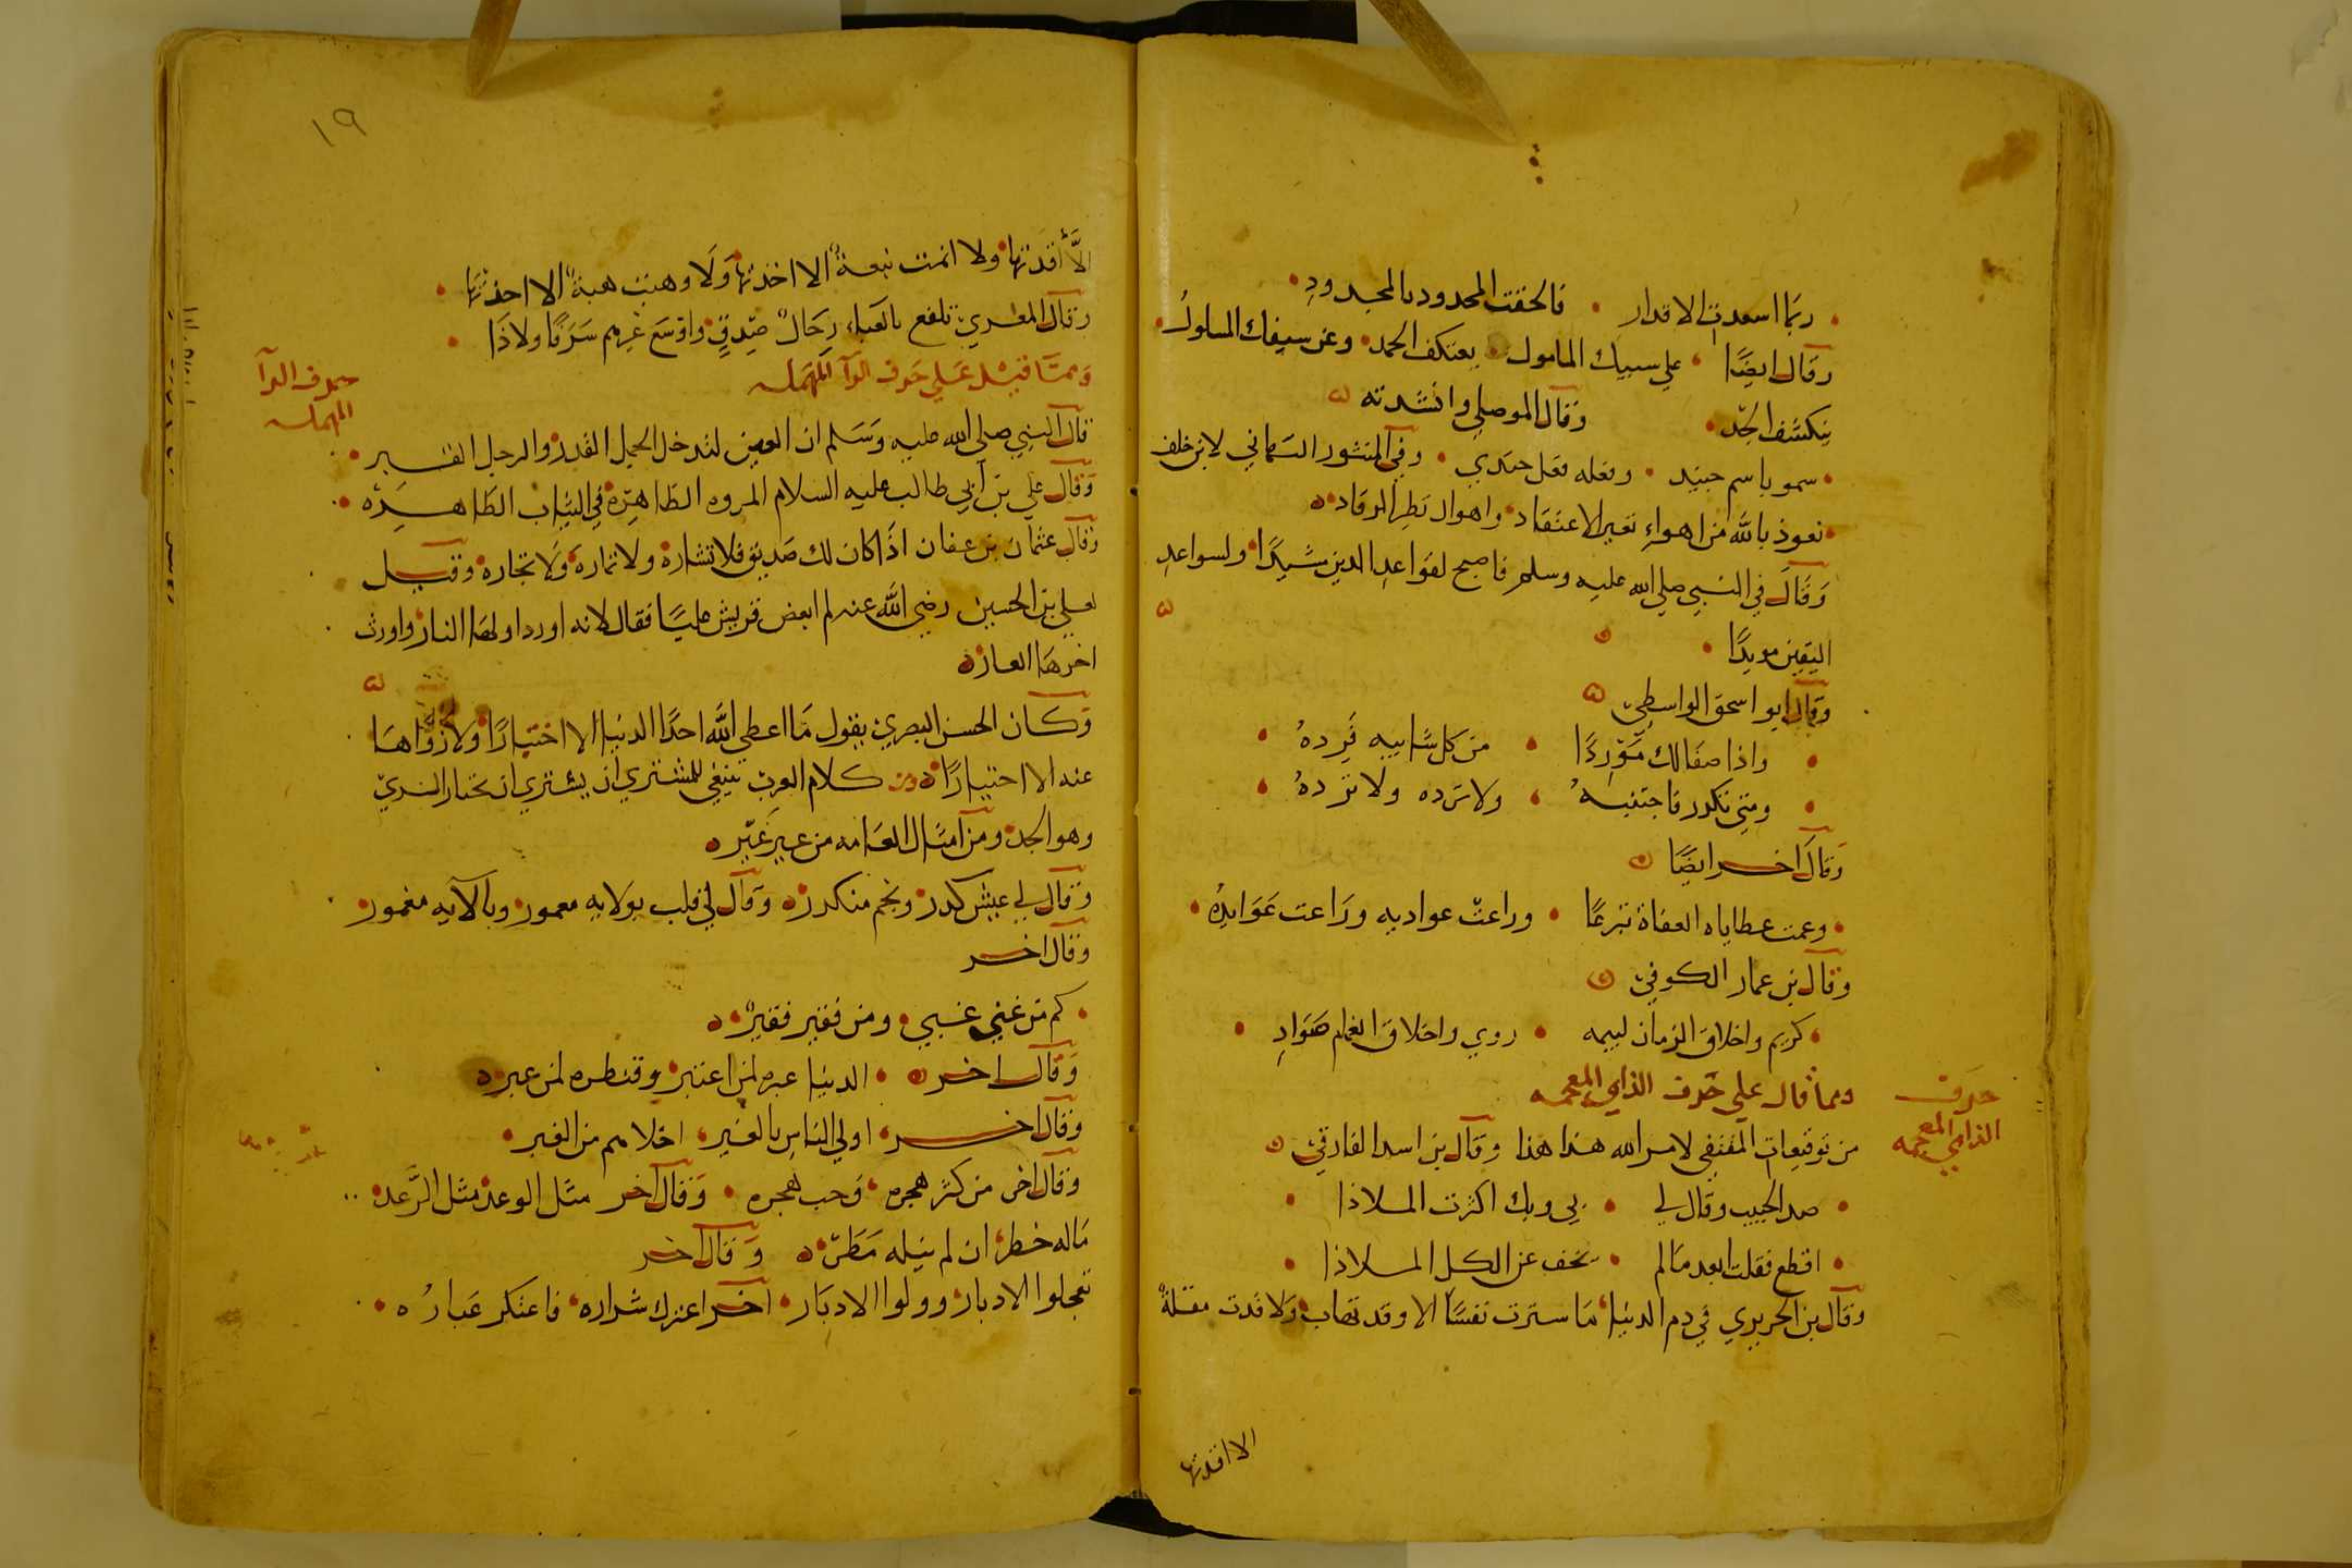 ربما اسعدت الاقدار • فالحقت المحدود بالمجدود •
وقال ايضًا • علي سيبك المامول • يعتكف الحمد • وعن سيفك المسلول •
ينكشف الحد • وقال الموصلي وانشدته
• سمو باسم جنيد • وفعله فعل جندي • وفي المنثور البهائي لابن خلف
• نعوذ بالله من اهواء تغير الاعتقاد • واهوال تطير الرقاد
وقال في النبي صلي الله عليه وسلم فاصبح لقواعد الدين مشيدًا • ولسواعد
اليقين مويدًا •
وقال ابو اسحق الواسطي
• واذا صفا لك موردًا • من كل شايبه فرده •
• ومتي تكدر فاجتنبه • ولا سرده ولا ترده •
وقال اخر ايضًا
• وعمت عطاياه العفاة تبرعًا • وراعت عواديه وراعت عوايده •
وقال بن عمار الكوفي
• كريم واخلاق الزمان لييمه • روي واخلاق الغمام صواد •
ومما قال علي حرف الذاي المعجمه
حرف
الذاي المعجمه
من توقيعات المقتفي لامر الله هذا هذا وقال بن اسد الفارقي
• صد الحبيب وقال لي • بي وبك اكثرت الملاذا •
• اقطع فقلت ابعد ما لم • يخف عن الكل الملاذا •
وقال بن الحريري في دم الدنيا • ما سترت نفسًا الا وقد تهاب • ولا قدت مقلة
الا اقذتها
١٩
الا أقذتها • ولا اتمت نعمة الا اخذتها • ولا وهبت هبة الا اخذتها •
وقال المعري تلفع بالعباء رجال صدق • واوسع غيرهم سرقًا ولاذا •
ومما قيل علي حرف الرآ المهمله
حرف الرآ
المهمله
قال النبي صلي الله عليه وسلم ان العين لتدخل الجمل القدر والرجل القبر •
وقال علي بن أبي طالب عليه السلام المروه الظاهره في الثياب الطاهره •
وقال عثمان بن عفان اذا كان لك صديق فلا تشاره ولا تماره ولا تجاره وقيل
لعلي بن الحسين رضي الله عنه لم ابغض قريش عليًا فقال لانه اورد اولها النار واورث
اخرها العار
وكان الحسن البصري يقول ما اعطي الله احدًا الدنيا الا اختبارًا ولا زواها
عنه الا اختيارًا ومن كلام العرب ينبغي للمشتري ان يشتري ان يختار الندي
وهو الجد ومن امثال العامه من عير غير
وقال لي عيش كدر ونجم منكدر وقال لي قلب بولايه معمور وبآلايه مغمور
وقال اخر
• كم من غني غبي • ومن فقير فقير •
وقال اخر • الدنيا عبره لمن اعتبر وقنطره لمن عبر
وقال اخر • اولي الناس بالغير • اخلاهم من الغير •
وقال اخر من كثر هجره • وجب هجره • وقال اخر مثل الوعد مثل الرعد
ماله خطر • ان لم يتله مطر وقال اخر
تعجلوا الادبار • وولوا الادبار • اخر اعترك شراره • فاعتكر غباره •